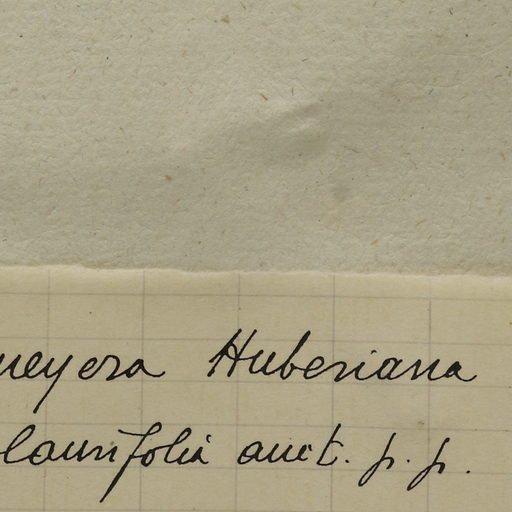 meyera Huberiana
laurifolia auct. p. p.